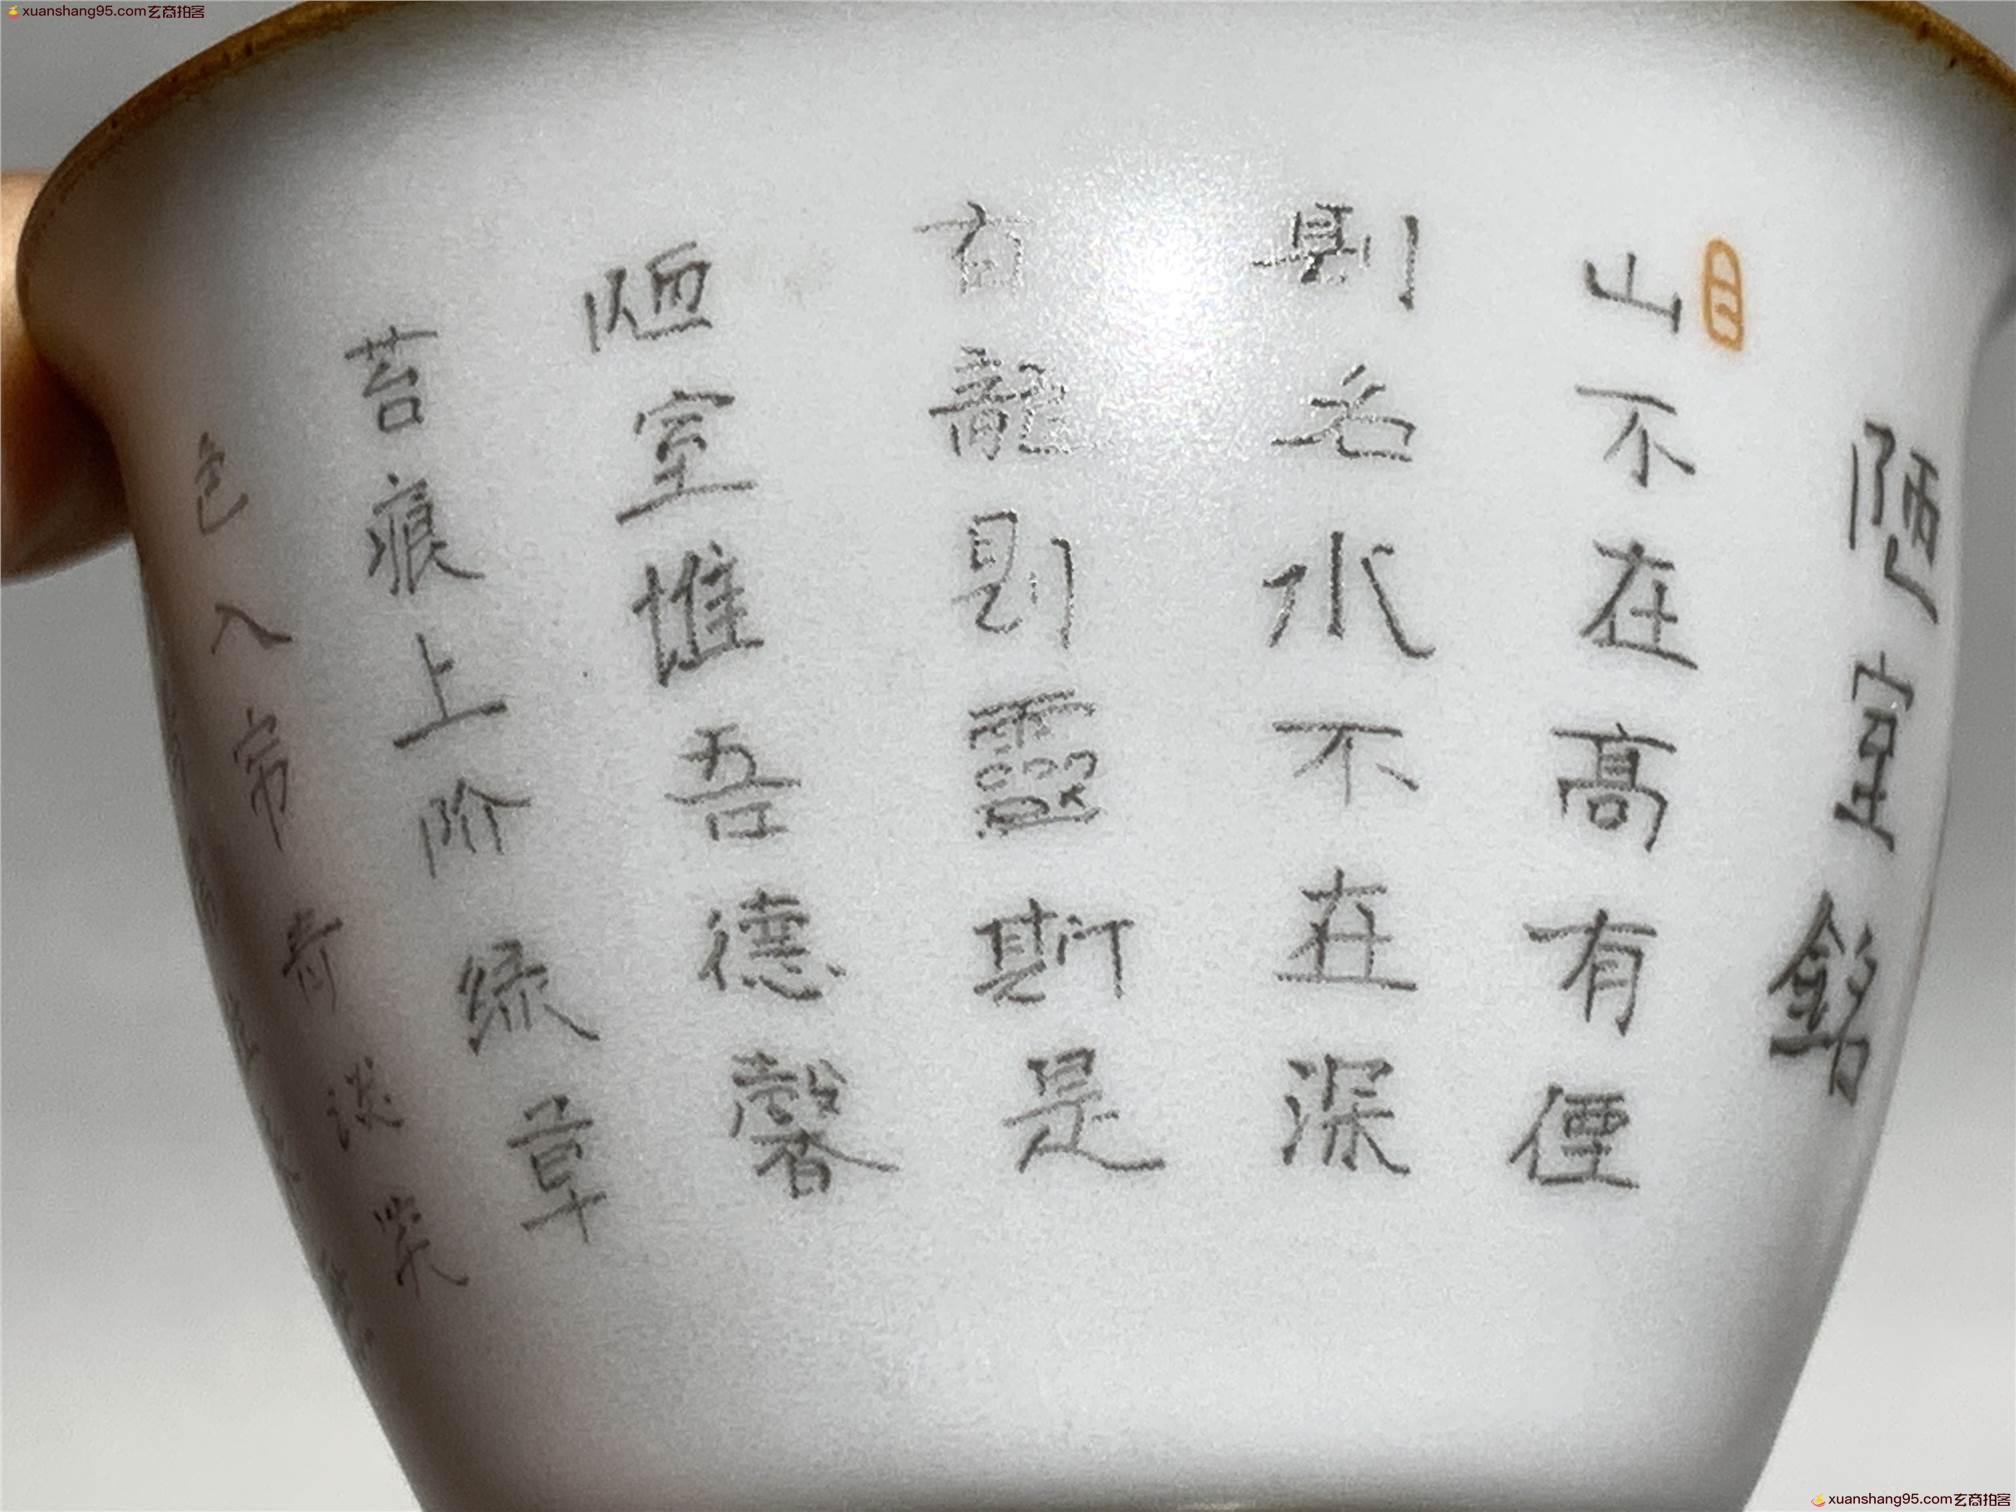 陋室銘
山不在高有僊
則名水不在深
有龍則靈斯是
陋室惟吾德馨
苔痕上阶绿草
色入帘青谈笑
xuanshang95.com玄商拍客
xuanshang95.com玄商拍客